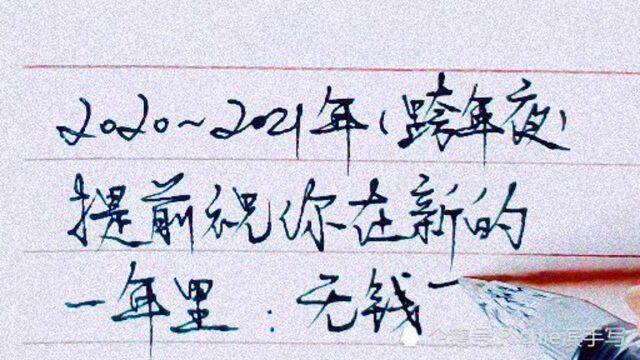 2020~2021年(跨年夜)
提前祝你在新的
一年里:无钱一